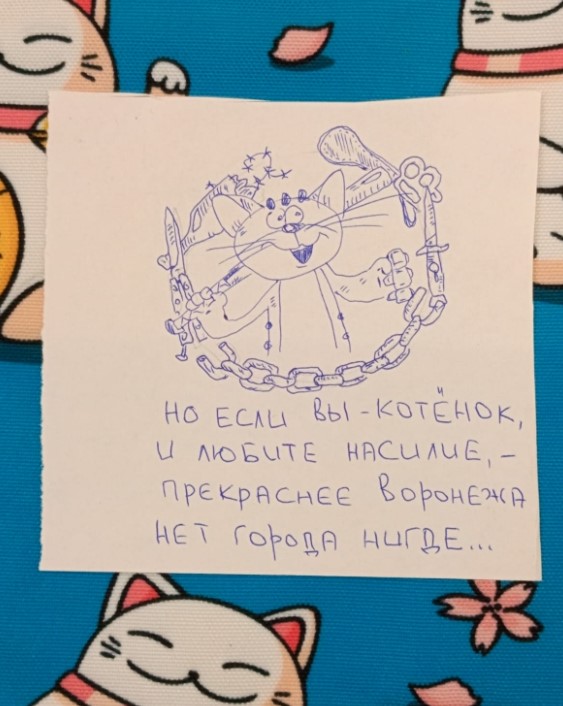 НО ЕСЛИ ВЫ - КОТЁНОК,
И ЛЮБИТЕ НАСИЛИЕ, -
ПРЕКРАСНЕЕ ВОРОНЕЖА
НЕТ ГОРОДА НИГДЕ...